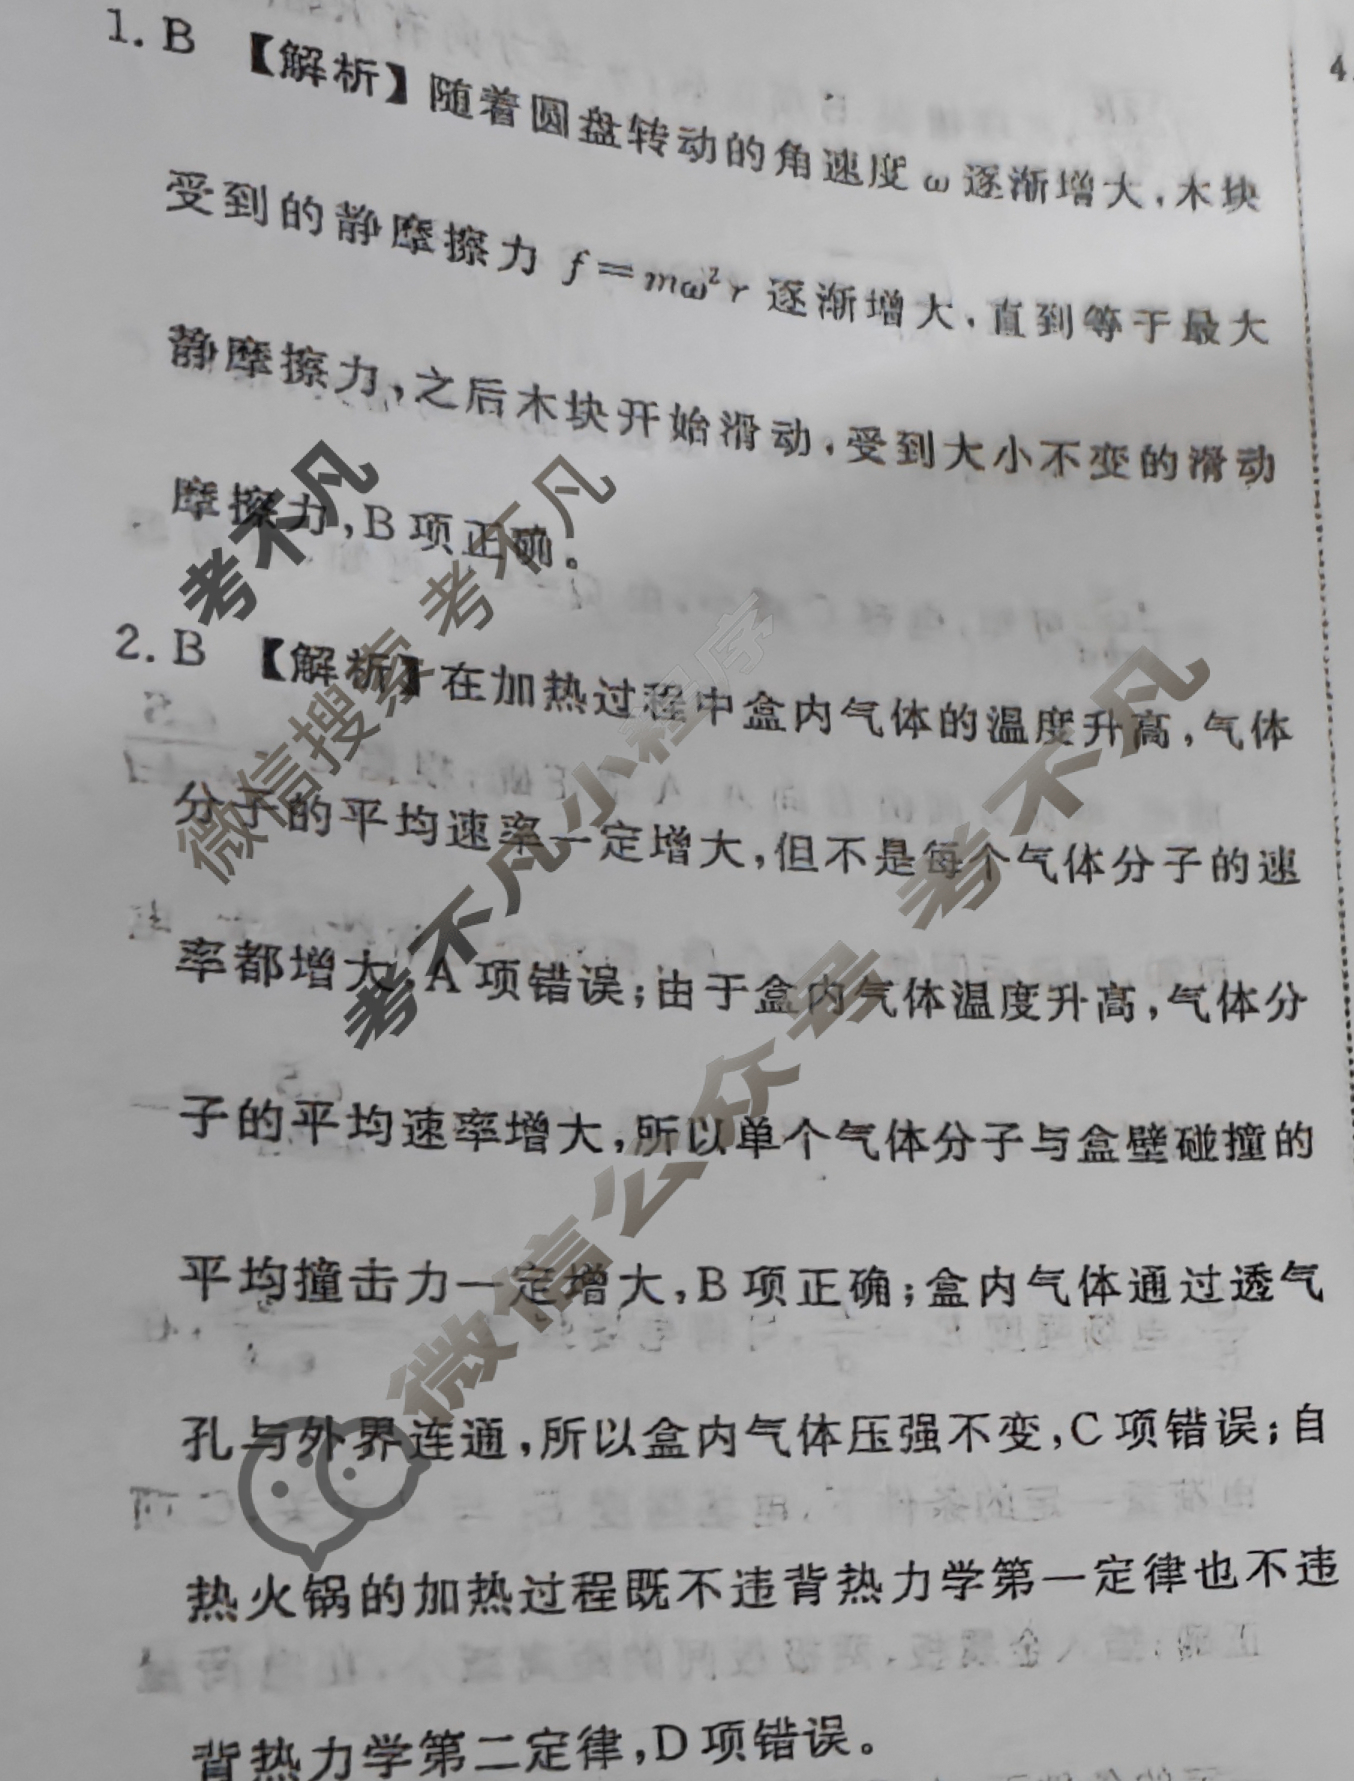 1. B 【解析】随着圆盘转动的角速度 ω 逐渐增大,木块
受到的静摩擦力 f=mω²r 逐渐增大,直到等于最大
静摩擦力,之后木块开始滑动,受到大小不变的滑动
摩擦力,B项正确。
2. B 【解析】在加热过程中盒内气体的温度升高,气体
分子的平均速率一定增大,但不是每个气体分子的速
率都增大,A项错误;由于盒内气体温度升高,气体分
子的平均速率增大,所以单个气体分子与盒壁碰撞的
平均撞击力一定增大,B项正确;盒内气体通过透气
孔与外界连通,所以盒内气体压强不变,C项错误;自
热火锅的加热过程既不违背热力学第一定律也不违
背热力学第二定律,D项错误。
4.
考不凡
微信搜索 考不凡
考不凡小程序
微信公众号 考不凡